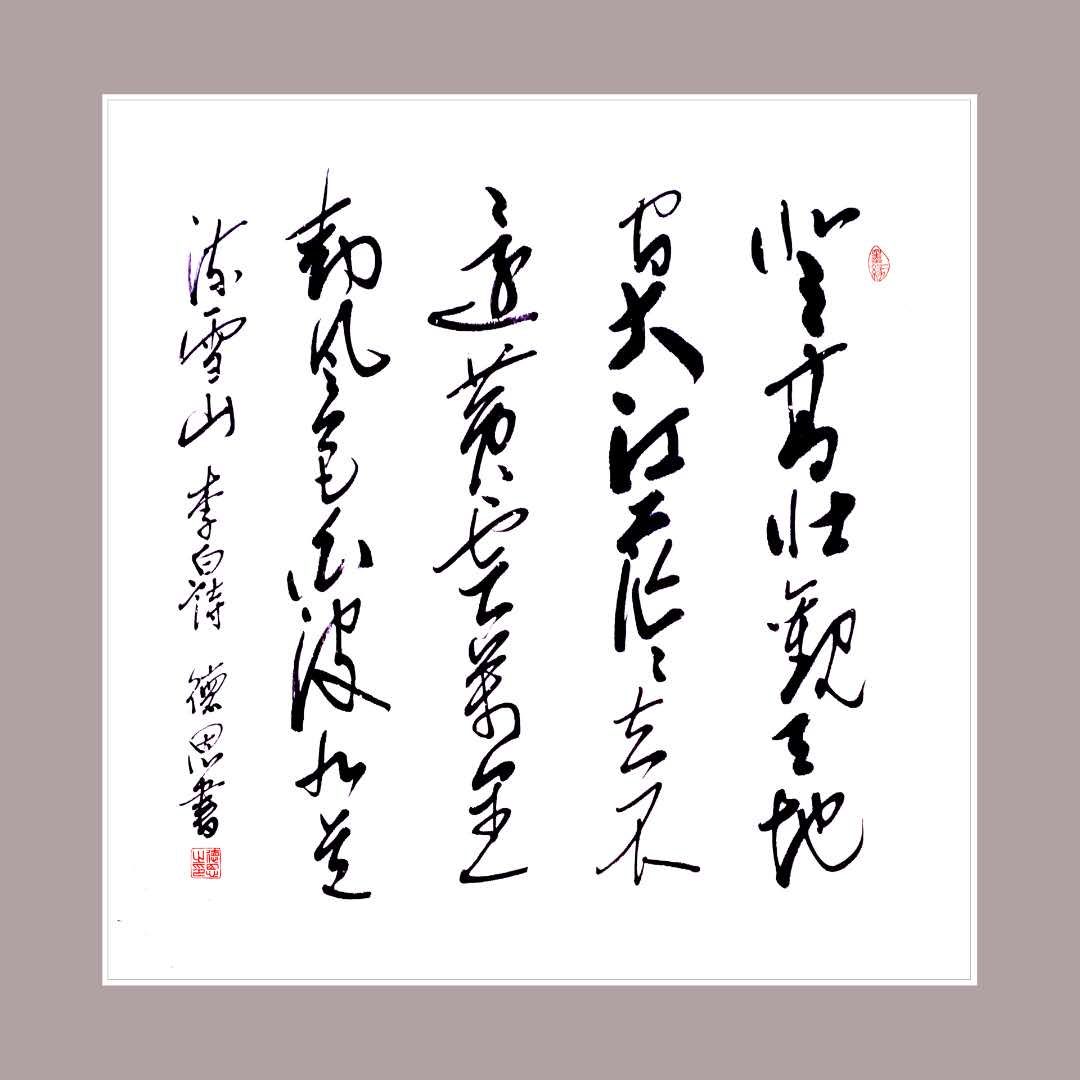 登高壯觀天地
間大江茫茫去不
還黃雲萬里
動風色白波九道
流雪山 李白詩 德恩書
德恩之印